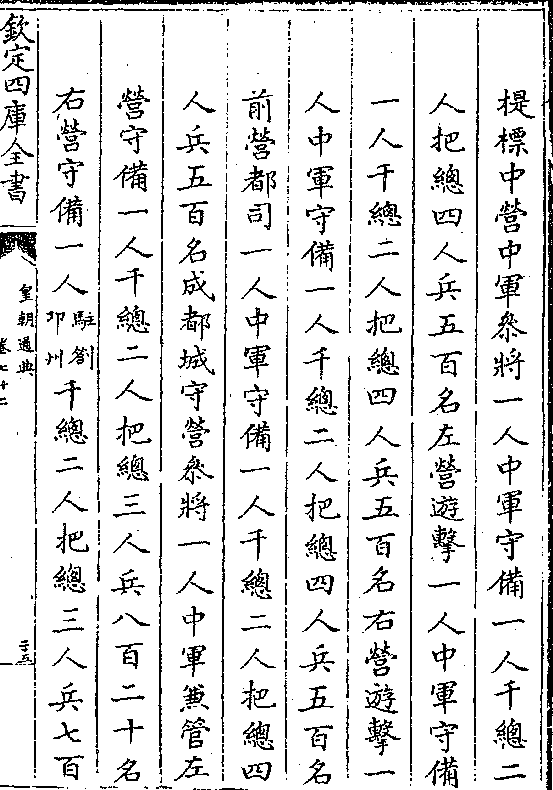 提標中營中軍叅將一人中軍守備一人千總二
人把總四人兵五百名左營遊擊一人中軍守備
一人千總二人把總四人兵五百名右營遊擊一
人中軍守備一人千總二人把總四人兵五百名
前營都司一人中軍守備一人千總二人把總四
人兵五百名成都城守營叅將一人中軍兼管左
營守備一人千總二人把總三人兵八百二十名
右營守備一人駐劄邛州千總二人把總三人兵七百
欽定四庫全書
皇朝通典
卷七十二
二十五